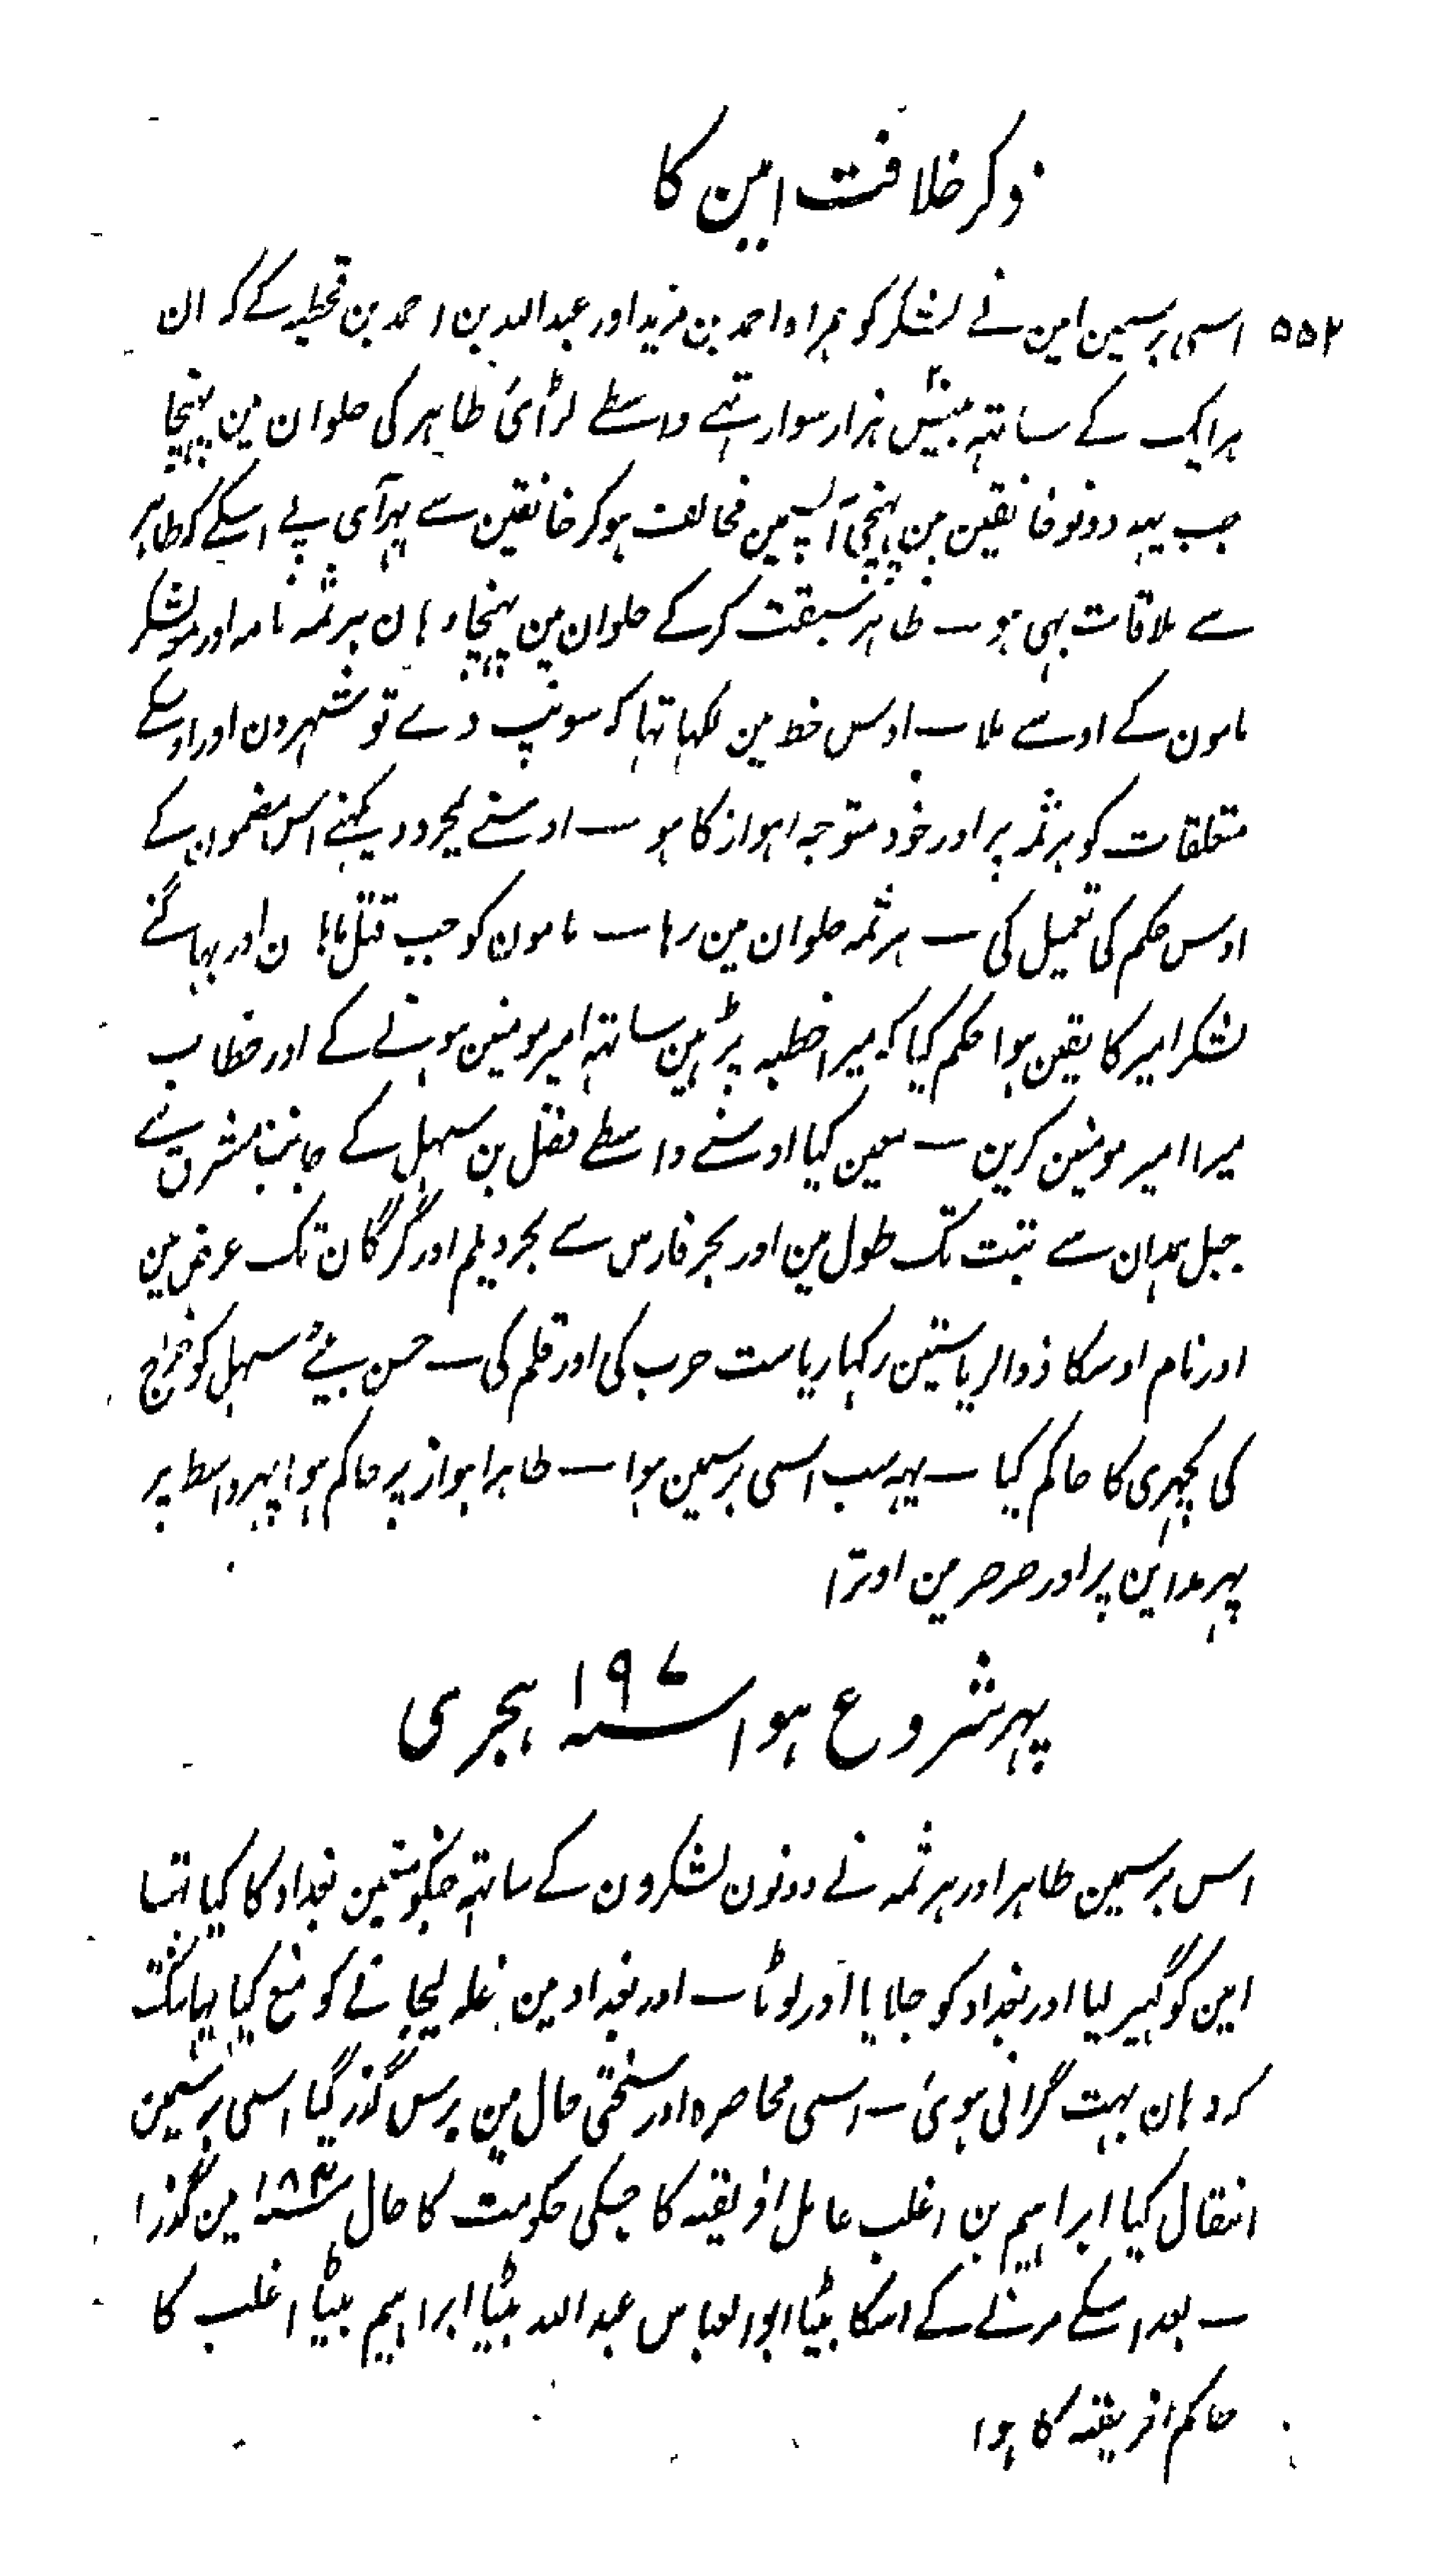 ذکر خلافت امین کا
۵۵۲ اسی برسمین امین نے لشکر کو ہمراہ احمد بن مزید اور عبد اللہ بن احمد بن قحطبہ کے کہ ان
ہر ایک کے ساتہہ بیس ہزار سوار تہے واسطے لڑائی طاہر کی حلوان مین پہنچا
جب یہہ دونو خانقین مین پہنچی آپسمین مخالف ہوکر خانقین سے پہر آی بے اسکے کہ طاہر
سے ملاقات بہی ہو ــ طاہر سبقت کرکے حلوان مین پہنچا وہان ہرثمہ نامہ اور لشکر
مامون کے اوسے ملا ــ اوس خط مین لکہا تہا کہ سونپ دے تو شہرون اور اوسکے
متعلقات کو ہرثمہ پر اور خود متوجہ اہواز کا ہو ــ اوسنے بمجرد دیکہنے اس مضمون کے
اوس حکم کی تعمیل کی ــ ہرثمہ حلوان مین رہا ــ مامون کو جب قتل اور بہاگنے
لشکر امیر کا یقین ہوا حکم کیا کہ میرا خطبہ پڑہین ساتہہ امیر مومنین ہونے کے اور خطاب
میرا امیر مومنین کرین ــ معین کیا اوسنے واسطے فضل بن سہل کے جانب مشرق نے
جبل ہمدان سے تبت تک طول مین اور بحر فارس سے بحر دیلم اور گرگان تک عرض مین
اور نام اوسکا ذوالریاستین رکہا ریاست حرب کی اور قلم کی ــ حسن بیٹے سہل کو خراج
کی کچہری کا حاکم کیا ــ یہہ سب اسی برسمین ہوا ــ طاہر اہواز پر حاکم ہوا پہر واسط پر
پہر مداین پر اور صرصر مین اوترا
پہر شروع ہوا سنہ ۱۹۷ ہجری
اس برسمین طاہر اور ہرثمہ نے دونون لشکرون کے ساتہہ بغداد کا کیا تہا
امین کو گہیر لیا اور بغداد کو جلایا اور لوٹا ــ اور بغداد مین غلہ لیجانے کو منع کیا یہانتک
کہ وہان بہت گرانی ہوئی ــ اسی محاصرہ اور سختی حال مین برس گذر گیا اسی برسمین
انتقال کیا ابراہیم بن اغلب عامل افریقیہ کا جسکی حکومت کا حال سنہ ۱۸۴ مین گذرا
ــ بعد اسکے مرنے کے اسکا بیٹا ابو العباس عبد اللہ بیٹا ابراہیم بیٹا اغلب کا
حاکم افریقیہ کا ہوا